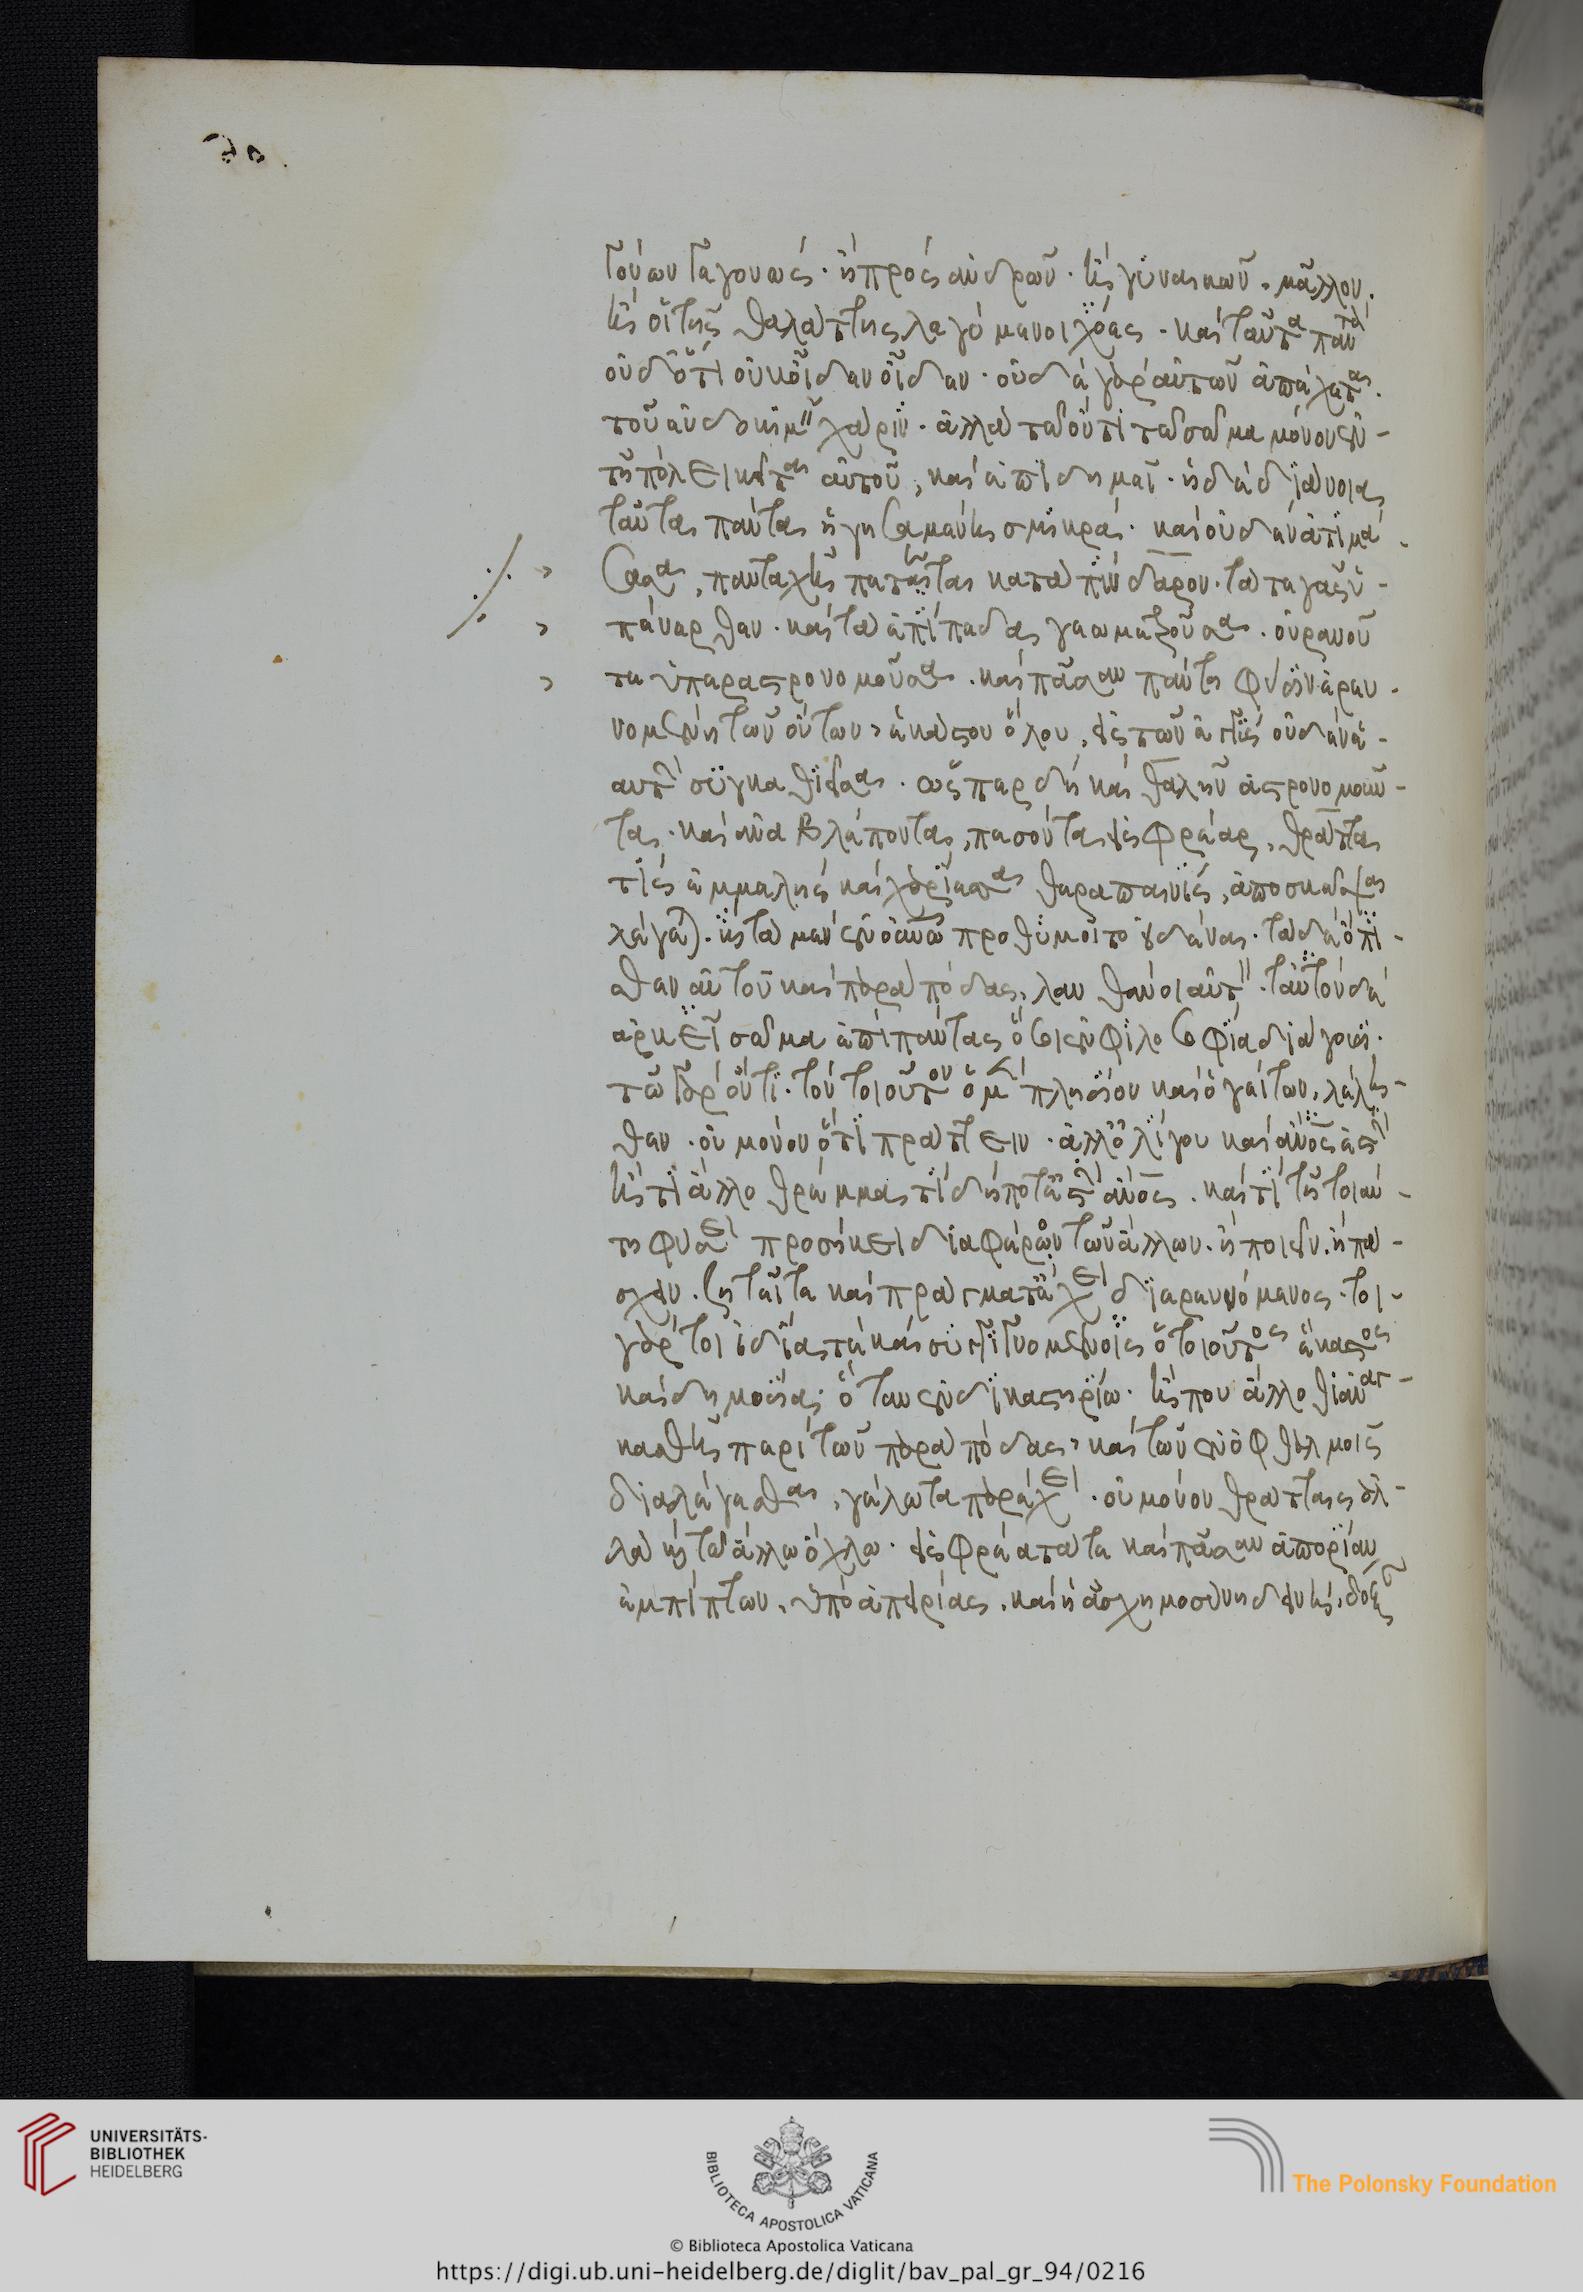 γόνων γεγονὼς· ἢ πρὸς ἀνδρῶν· ἢ γυναικῶν, μᾶλλον.
ἢ οἱ τῆς θαλάττης λεγόμενοι χόες· καὶ ταῦτα πάντα
οὐδ' ὅτι οὐκ οἶδεν οἶδεν· οὐδὲ γὰρ αὐτῶν ἀπέχεται.
τοῦ εὐδοκιμεῖν χάριν· ἀλλὰ τῶ ὄντι τὸ σῶμα μόνον ἐν
τῆ πόλει κεῖται αὐτοῦ, καὶ ἐπιδημεῖ· ἡ δὲ διάνοια
ταῦτα πάντα ἡγησαμένη σμικρά· καὶ οὐδὲν ἀτιμά-
σασα, πανταχῆ πέτεται κατὰ πίνδαρον· τά τε γᾶς ὑ-
πένερθεν· καὶ τὰ ἐπίπεδα γεωμετροῦσα· οὐρανοῦ
τε ὕπερ ἀστρονομοῦσα· καὶ πᾶσαν πάντη φύσιν ἐρευ-
νομένη τῶν ὄντων, ἑκάστου ὅλου, εἰς τῶν ἐγγὺς οὐδὲν ἑ-
αυτὴν συγκαθιεῖσα· ὥσπερ δὴ καὶ θαλῆν ἀστρονομοῦν-
τα· καὶ ἄνω βλέποντα, πεσόντα εἰς φρέαρ, θράττα
τὶς ἐμμελὴς καὶ χαρίεσσα θεραπαινὶς, ἀποσκῶψαι
λέγεται· ὡς τὰ μὲν ἐν οὐρανῶ προθυμοῖτο εἰδέναι· τὰ δὲ ὄπι-
σθεν αὐτοῦ καὶ παρὰ πόδας, λανθάνοι αὐτὸν· ταὐτὸν δὲ
ἀρκεῖ σῶμα ἐπὶ πάντας ὅσοι ἐν φιλοσοφία διάγουσι·
τῶ γὰρ ὄντι· τὸν τοιοῦτον ὁ μὲν πλησίον καὶ ὁ γείτων, λέλη-
θεν· οὐ μόνον ὅτι πράττειν· ἀλλ' ὀλίγου καὶ ἄνος ἐστὶν
ἤ τι ἄλλο θρέμμα· τί δήποτ' ἐστὶν ἄνος· καὶ τί τῆ τοιαύ-
τη φύσει προσήκει διαφέρον τῶν ἄλλων· ἢ ποιεῖν· ἢ πά-
σχειν· ζητεῖ τε καὶ πράγματ' ἔχει διερευνόμενος· τοι-
γάρτοι ἰδία τὲ καὶ συγγιγνομένοις ὁ τοιοῦτος ἑκάστος
καὶ δημοσία· ὅταν ἐν δικαστηρίω· ἤ που ἄλλοθι ἀναγ-
κασθῆ περὶ τῶν παρὰ πόδας, καὶ τῶν ἐν ὀφθαλμοῖς
διαλέγεσθαι, γέλωτα παρέχει· οὐ μόνον θράτταις ἀλ-
λὰ καὶ τῶ ἄλλω ὄχλω· εἰς φρέατά τε καὶ πᾶσαν ἀπορίαν
ἐμπίπτων, ὑπὸ ἀπειρίας· καὶ ἡ ἀσχημοσύνη δεινὴ, δόξαν
UNIVERSITÄTS-
BIBLIOTHEK
HEIDELBERG
BIBLIOTECA APOSTOLICA VATICANA
The Polonsky Foundation
© Biblioteca Apostolica Vaticana
https://digi.ub.uni-heidelberg.de/diglit/bav_pal_gr_94/0216